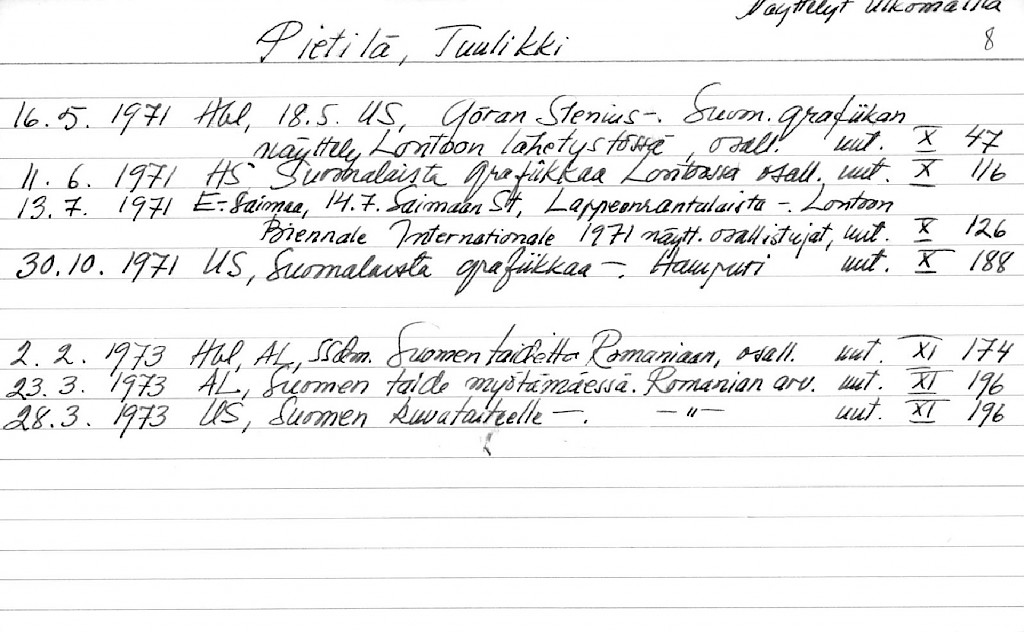 Näyttelyt ulkomailla
8
Pietilä, Tuulikki
16.5. 1971 Hbl, 18.5. US, Göran Stenius-. Suom. grafiikan
näyttely Lontoon lähetystössä, osall. uut. X 47
11.6. 1971 HS Suomalaista grafiikkaa Lontoossa osall. uut. X 116
13.7. 1971 E-Saimaa, 14.7. Saimaan St, Lappeenrantalaista -. Lontoon
Biennale Internationale 1971 näytt. osallistujat, uut. X 126
30.10. 1971 US, Suomalaista grafiikkaa -. Hampuri uut. X 188
2.2. 1973 Hbl, AL, SSdm. Suomen taidetta Romaniaan, osall. uut. XI 174
23.3. 1973 AL, Suomen taide myötämäessä. Romanian arv. uut. XI 196
28.3. 1973 US, Suomen kuvataiteelle -. -"- uut. XI 196